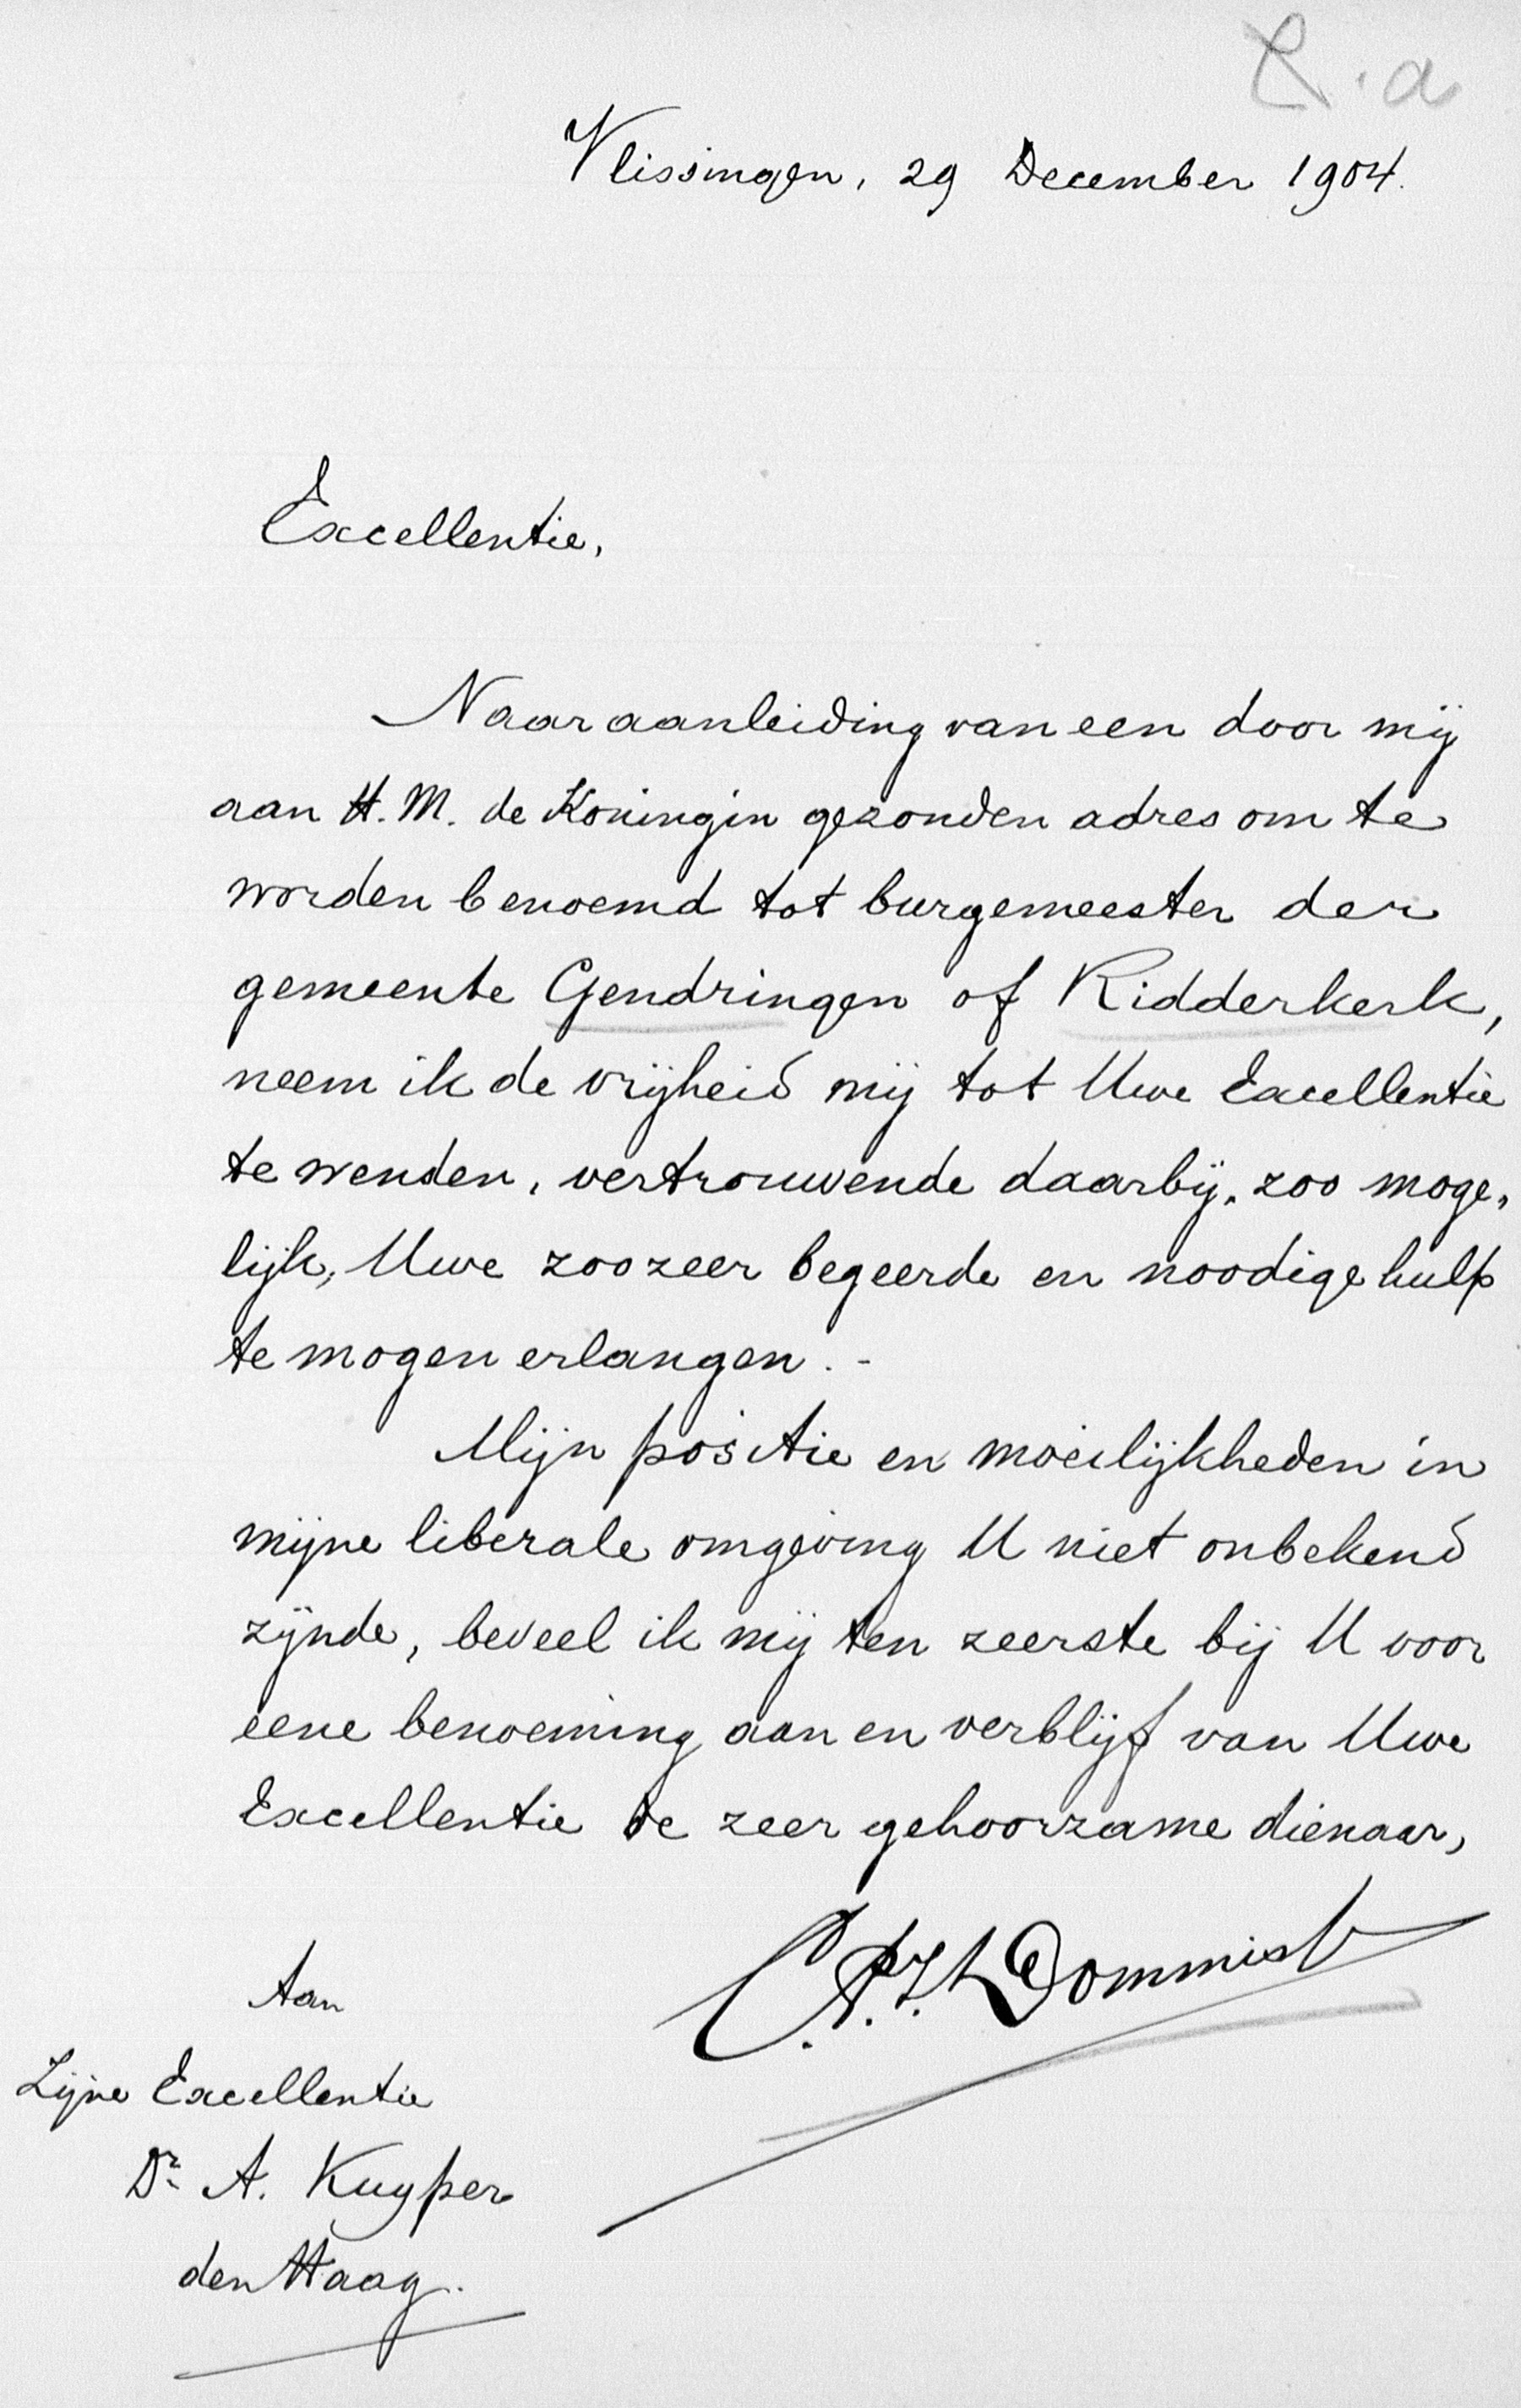 R.a
Vlissingen, 29 December 1904.
Excellentie,
Naar aanleiding van een door mij
aan H.M. de Koningin gezonden adres om te
worden benoemd tot burgemeester der
gemeente Gendringen of Ridderkerk,
neem ik de vrijheid mij tot Uwe Excellentie
te wenden, vertrouwende daarbij, zoo moge„
lijk, Uwe zoozeer begeerde en noodige hulp
te mogen erlangen. -
Mijn positie en moeilijkheden in
mijne liberale omgeving U niet onbekend
zijnde, beveel ik mij ten zeerste bij U voor
eene benoeming aan en verblijf van Uwe
Excellentie de zeer gehoorzame dienaar,
Dommisse
Aan
Zijne Excellentie
Dr A. Kuyper
den Haag.